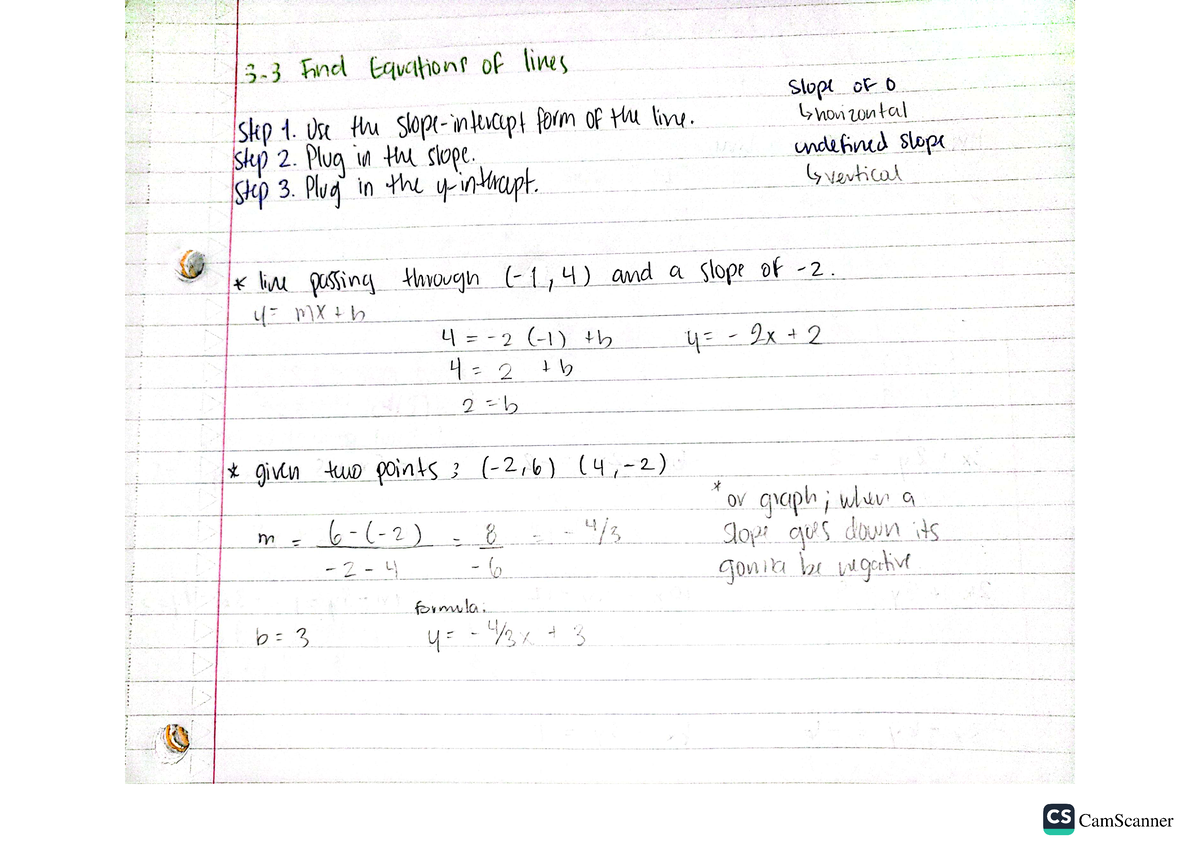 3-3 Find Equations of lines
Step 1. Use the slope-intercept form of the line.
Step 2. Plug in the slope.
Step 3. Plug in the y-intercept.
Slope of 0
↳horizontal
undefined slope
↳vertical
* line passing through (-1,4) and a slope of -2.
y= mx+b
4 = -2 (-1) +b
4 = 2 +b
2 =b
y= - 2x + 2
* given two points ; (-2,6) (4,-2)
m = 6-(-2) = 8 = - 4/3
-2-4 -6
*or graph; when a
slope goes down its
gonna be negative
b= 3
formula:
y= - 4/3x + 3
CS CamScanner